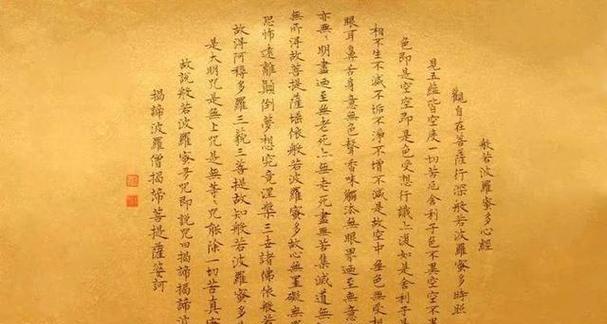 般若波羅蜜多心經
觀自在菩薩行深般若波羅蜜多時照
見五蘊皆空度一切苦厄舍利子色不異空空不異
色即是空空即是色受想行識亦復如是舍利子是
相不生不滅不垢不淨不增不減是故空中無色無受想
眼耳鼻舌身意無色聲香味觸法無眼界迺至無意
亦無〻明盡迺至無老死亦無老死盡無苦集滅道無
無所得故菩提薩埵依般若波羅蜜多故心無罣礙無
恐怖遠離顛倒夢想究竟涅槃三世諸佛依般若
故得阿耨多羅三藐三菩提故知般若波羅蜜多
是大明咒是無上咒是無等〻咒能除一切苦真實
故說般若波羅蜜多咒即說咒曰揭諦揭諦波
揭諦波羅僧揭諦菩提薩婆訶